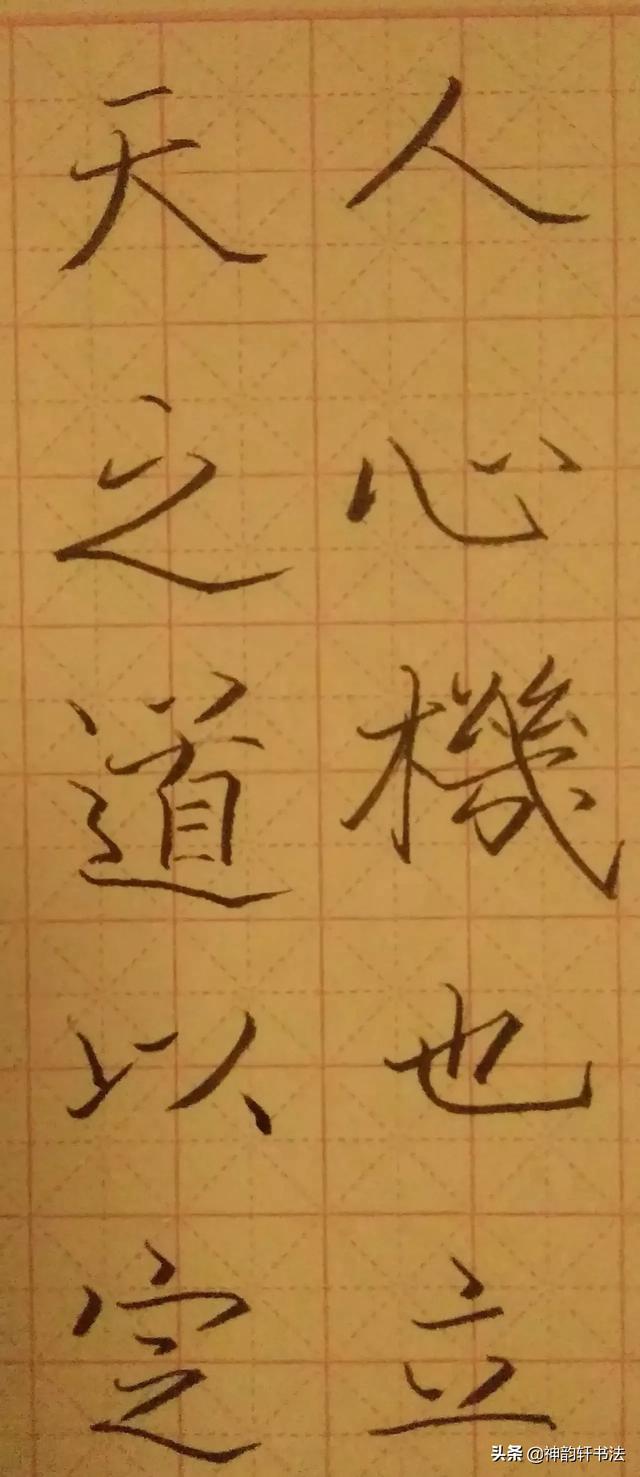 人心機也立
天之道以定
头条 @神韵轩书法